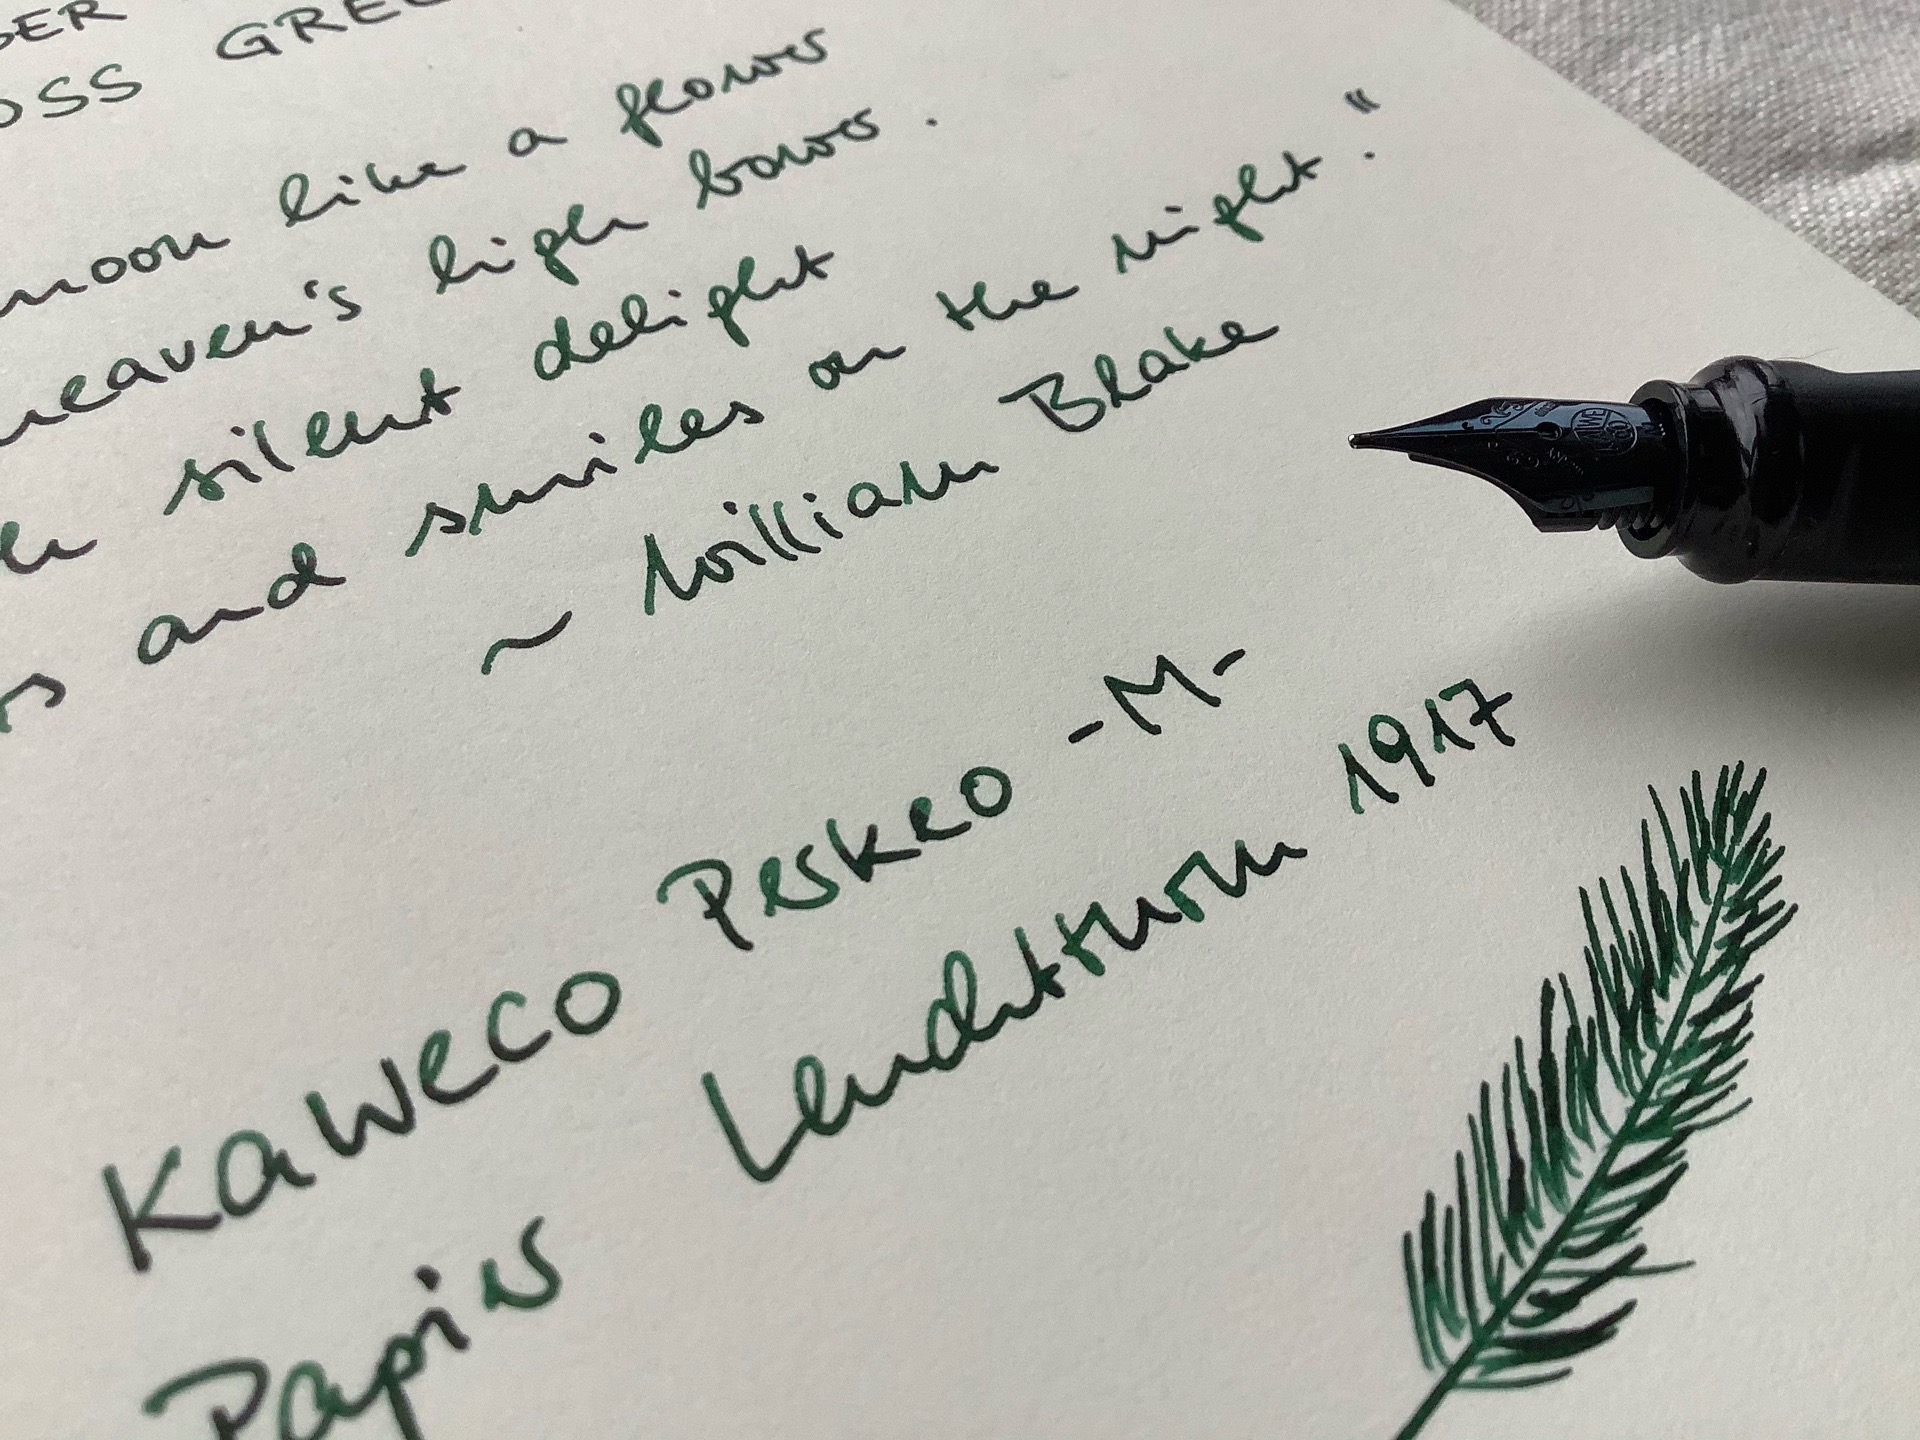 GREE
OSS
moon like a flower
heaven's high bower.
silent delight
and smiles on the night."
~ William Blake
Kaweco Perkeo -M-
Papier Leuchtturm 1917